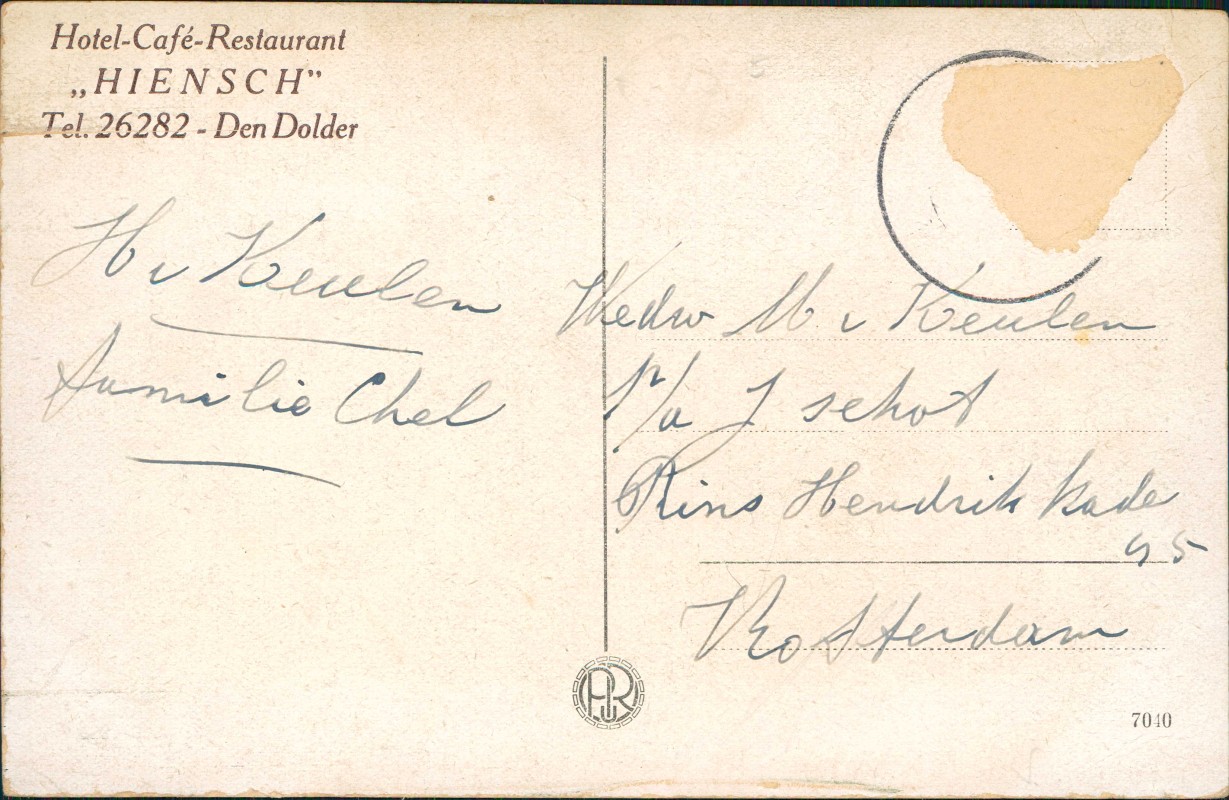 Hotel-Café-Restaurant
„HIENSCH”
Tel. 26282 - Den Dolder
H v Keulen
familie Chel
Wedw M. v Keulen
P/a J schot
Prins Hendrik kade
95
Rotterdam
7040